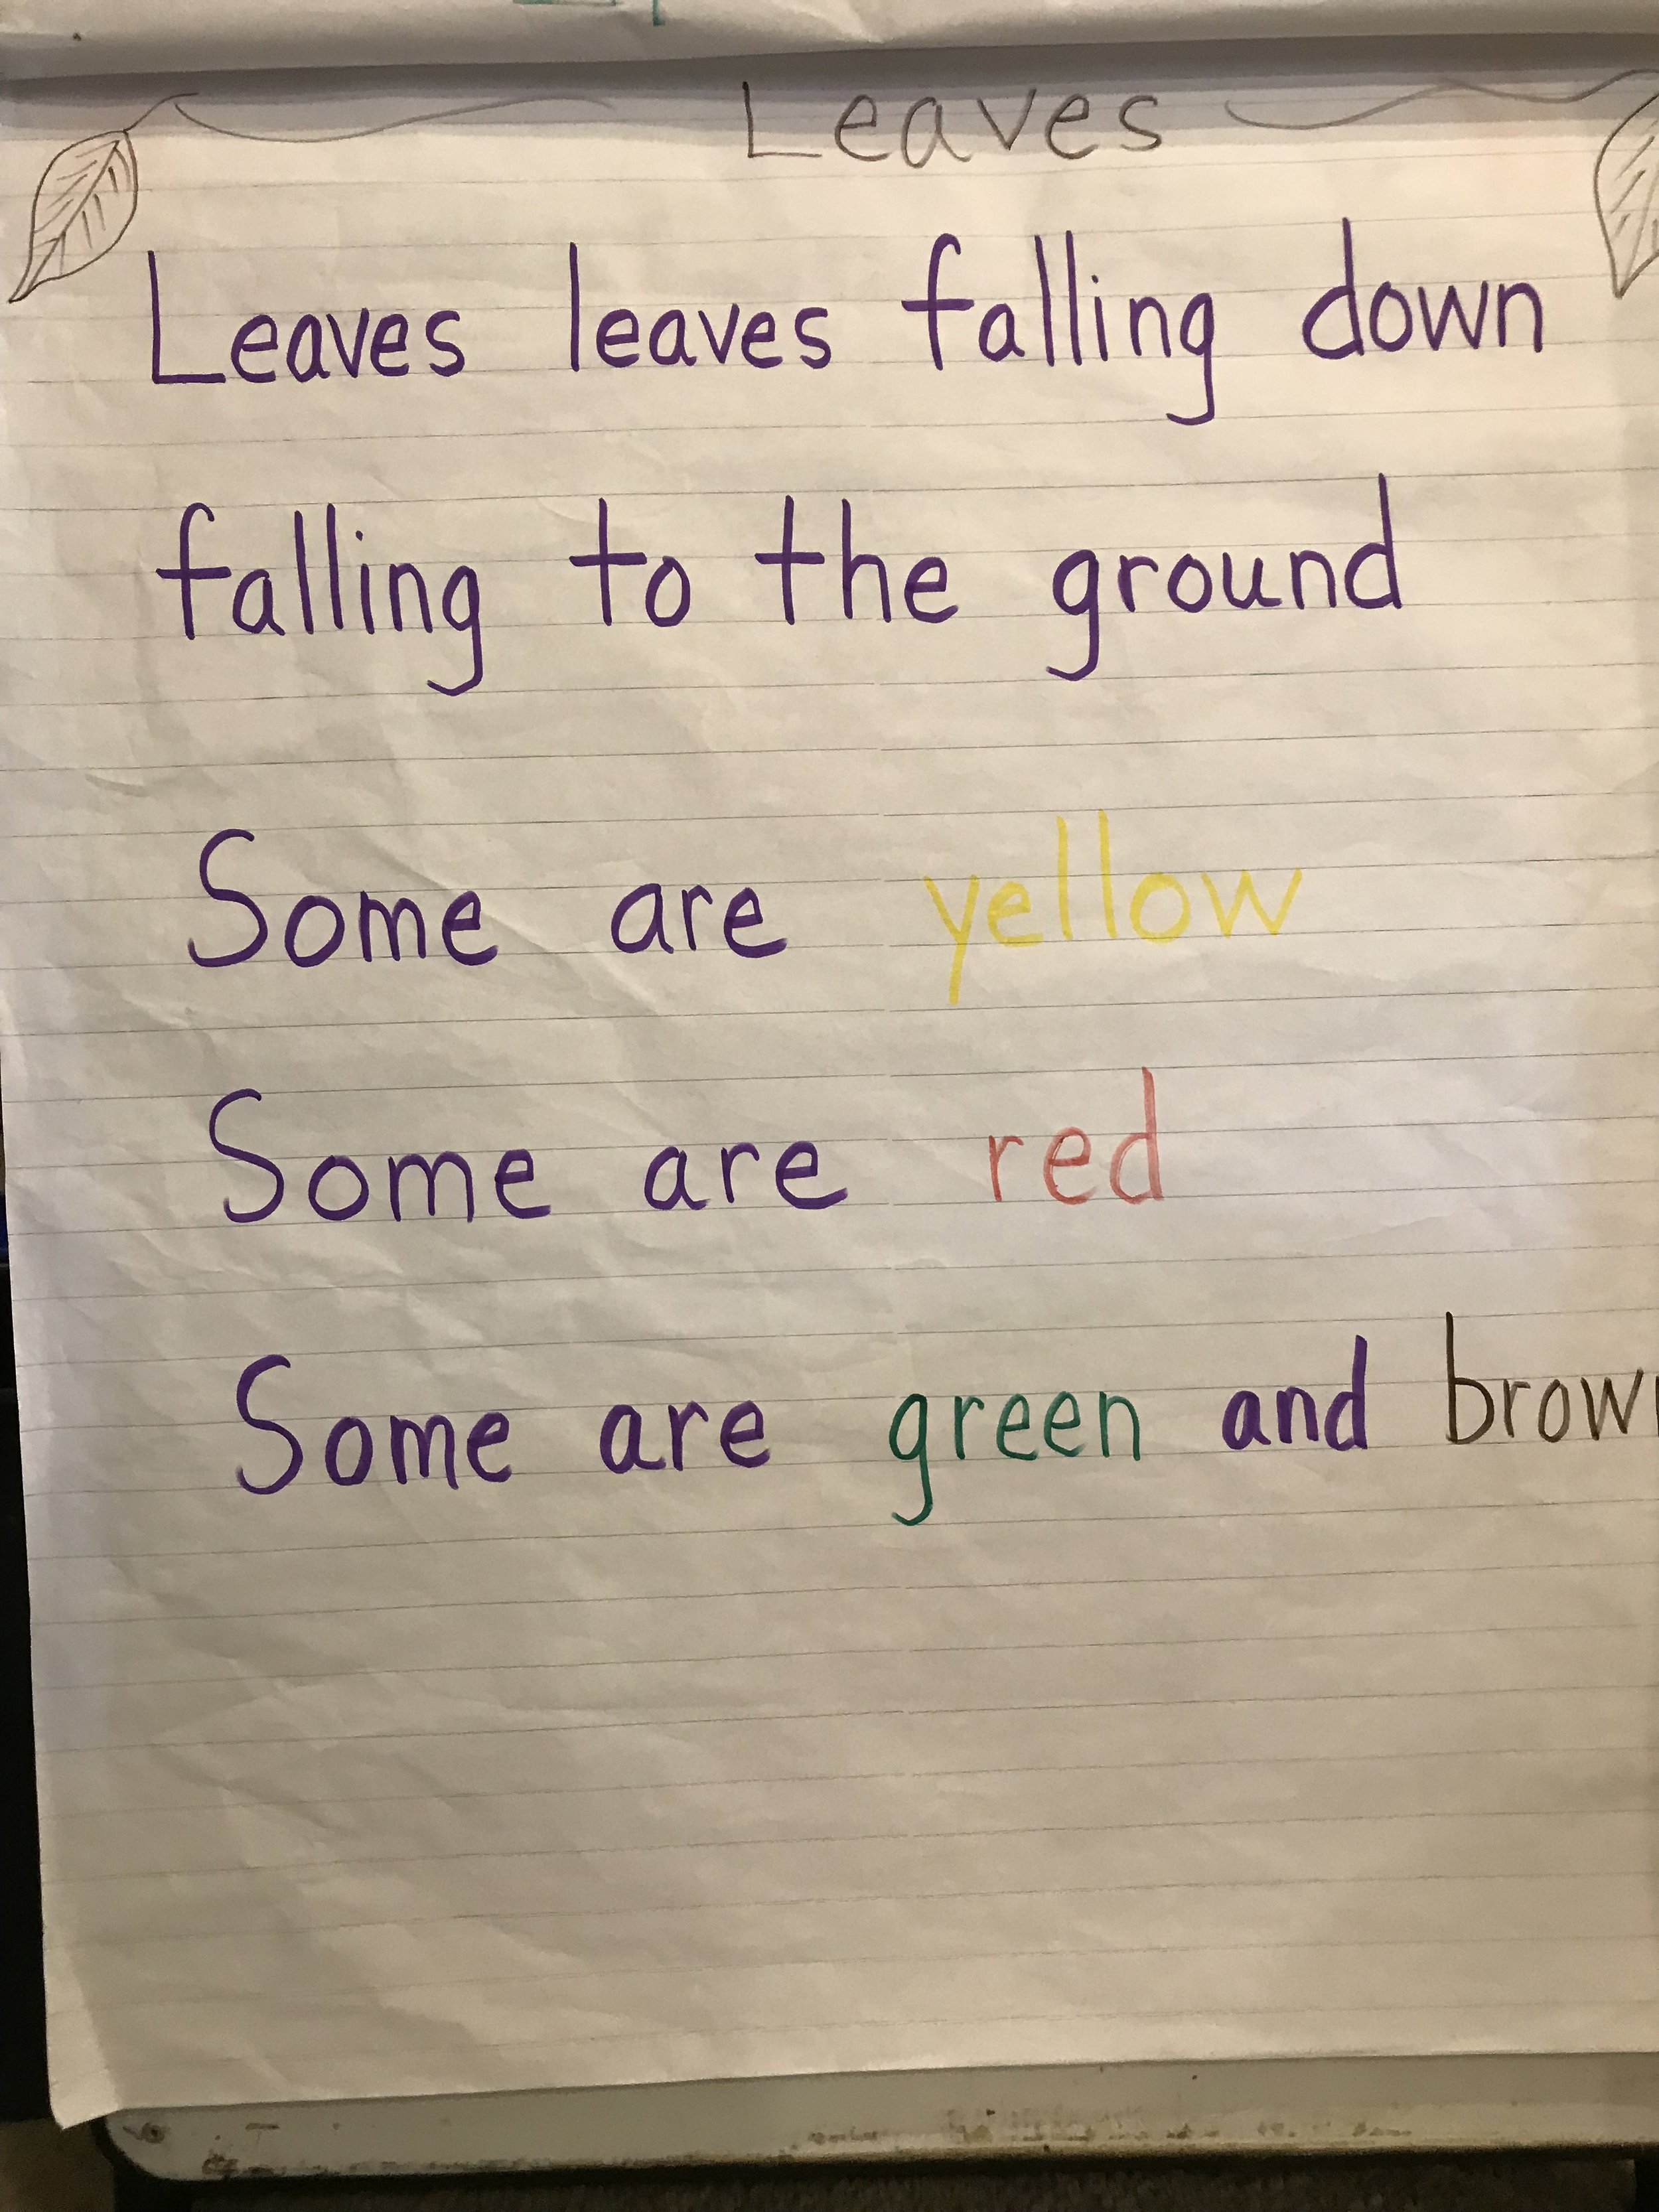 Leaves
Leaves leaves falling down
falling to the ground
Some are yellow
Some are red
Some are green and brown